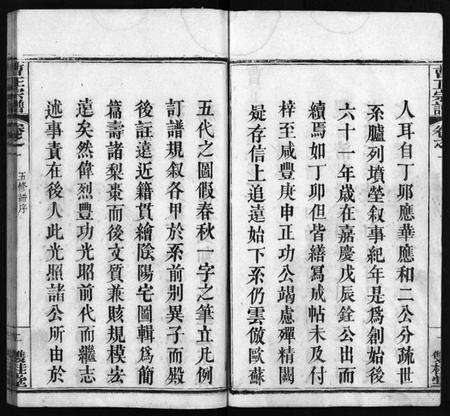 人耳自丁卯應華應和二公分疏世
系臚列墳塋叙事紀年是爲創始後
六十一年歲在嘉慶戊辰銓公出而
續焉如丁卯但皆繕寫成帖未及付
梓至咸豐庚申正功公竭慮殫精闕
疑存信上追遠始下系仍雲倣歐蘇
五代之圖假春秋一字之筆立凡例
訂譜規叙各甲於系前别異子而殿
後註遠近籍貫繪陰陽宅圖輯爲簡
篇壽諸梨棗而後文質兼賅規模宏
遠矣然偉烈豐功光昭前代而繼志
述事責在後人此光照諸公所由於
曹氏宗譜
卷之一
五修譜序
雙桂堂